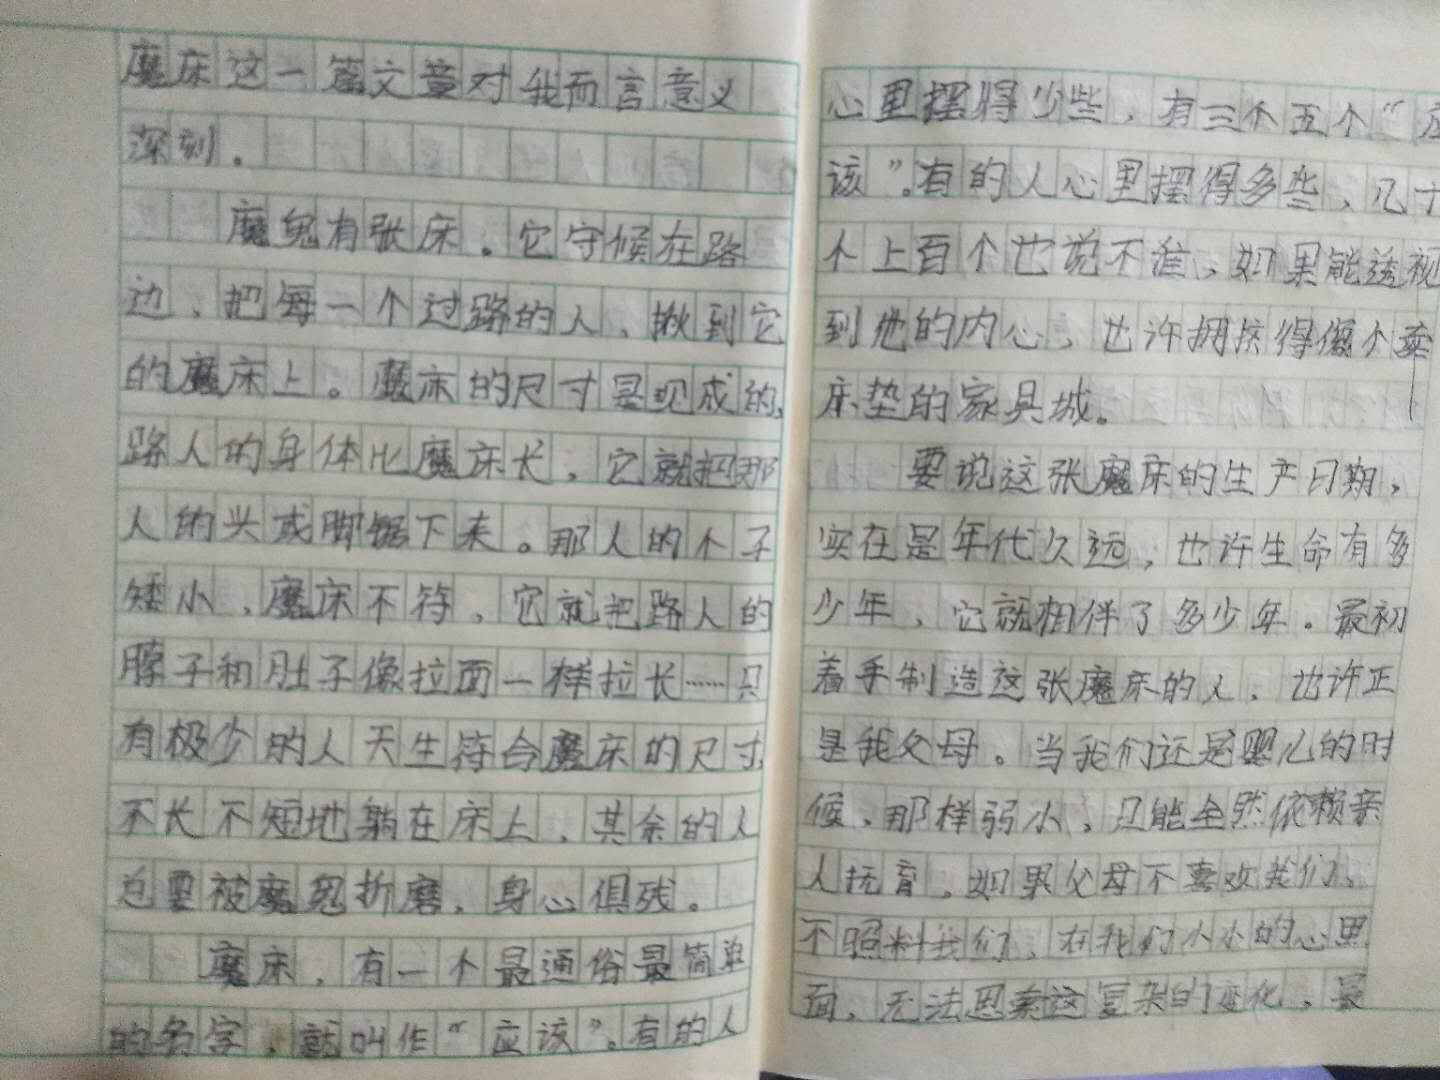 魔床这一篇文章对我而言意义
深刻。
魔鬼有张床。它守候在路
边、把每一个过路的人、揪到它
的魔床上。魔床的尺寸是现成的,
路人的身体比魔床长，它就把那
人的头或脚锯下来。那人的个子
矮小、魔床不符，它就把路人的
脖子和肚子像拉面一样拉长……只
有极少的人天生符合魔床的尺寸,
不长不短地躺在床上，其余的人
总要被魔鬼折磨，身心俱残。
魔床，有一个最通俗最简单
的名字，就叫作“应该”。有的人
心里摆得少些，有三个五个“应
该”。有的人心里摆得多些、几十
个上百个也说不准，如果能透视
到他的内心，也许拥挤得像个卖
床垫的家具城。
要说这张魔床的生产日期，
实在是年代久远，也许生命有多
少年，它就相伴了多少年。最初
着手制造这张魔床的人，也许正
是我父母。当我们还是婴儿的时
候、那样弱小，只能全然依赖亲
人抚育。如果父母不喜欢我们、
不照料我们，在我们小小的心里
面，无法思索这复杂的变化，最